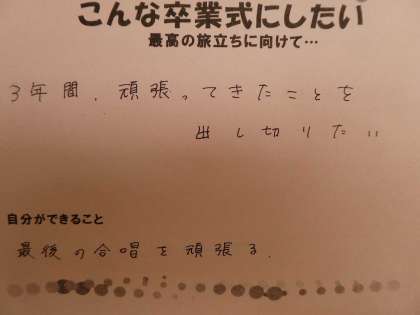 こんな卒業式にしたい
最高の旅立ちに向けて…
3年間、頑張ってきたことを
出し切りたい
自分ができること
最後の合唱を頑張る。